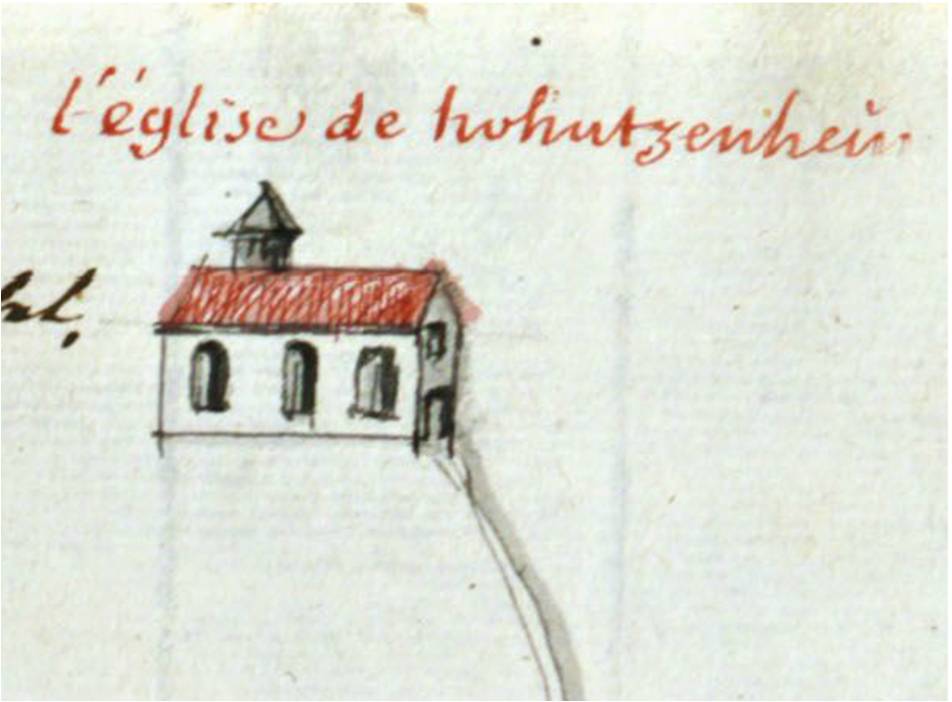 l'église de hohutzenheim